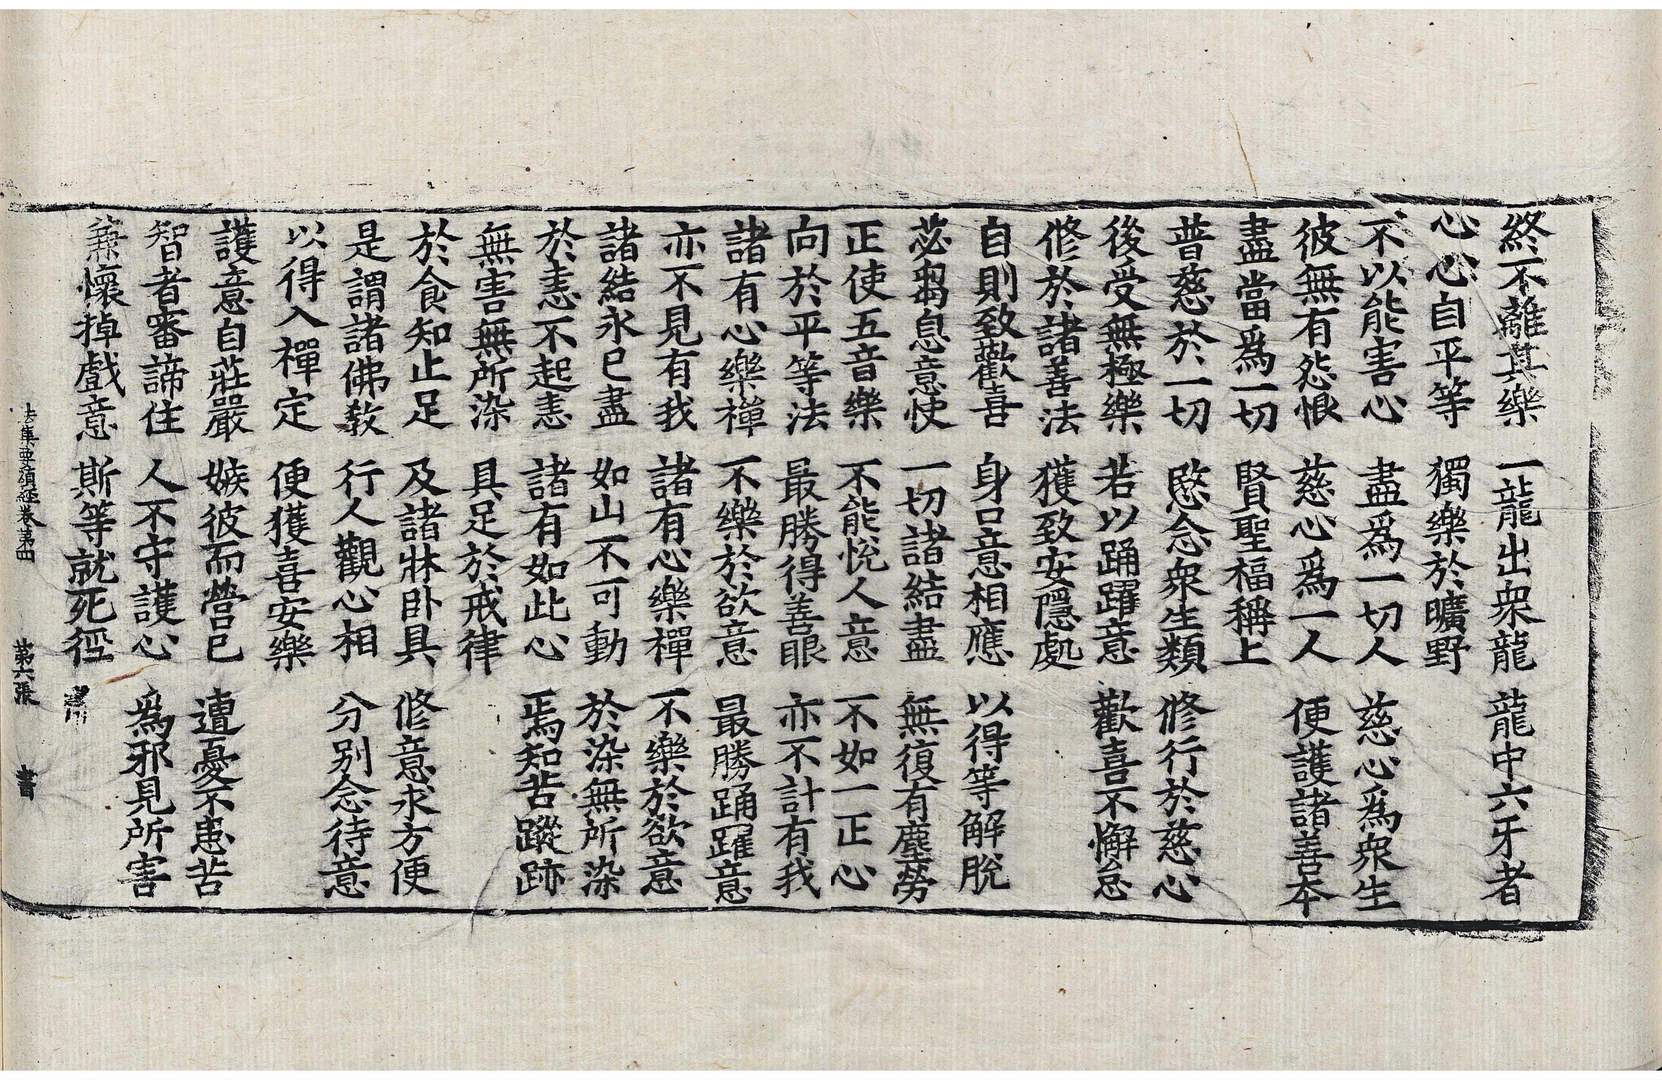 終不離其樂 一龍出衆龍 龍中六牙者
心心自平等 獨樂於曠野
不以能害心 盡爲一切人 慈心爲衆生
彼無有怨恨 慈心爲一人 便護諸善本
盡當爲一切 賢聖福稱上
普慈於一切 愍念衆生類 修行於慈心
後受無極樂 若以踊躍意 歡喜不懈怠
修於諸善法 獲致安隱處
自則致歡喜 身口意相應 以得等解脫
苾芻息意快 一切諸結盡 無復有塵勞
正使五音樂 不能悅人意 不如一正心
向於平等法 最勝得善眼 亦不計有我
諸有心樂禪 不樂於欲意 最勝踊躍意
亦不見有我 諸有心樂禪 不樂於欲意
諸結永已盡 如山不可動 於染無所染
於恚不起恚 諸有如此心 焉知苦蹤跡
無害無所染 具足於戒律
於食知止足 及諸牀臥具 修意求方便
是謂諸佛教 行人觀心相 分別念待意
以得入禪定 便獲喜安樂
護意自莊嚴 嫉彼而營已 遭憂不患苦
智者審諦住 人不守護心 爲邪見所害
兼懷掉戲意 斯等就死徑
法集要頌經卷第四 第六張 書